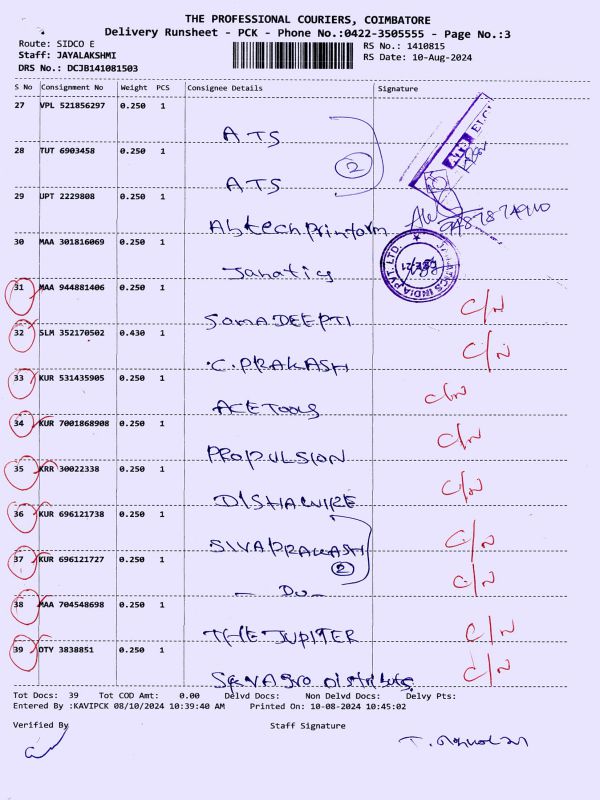 THE PROFESSIONAL COURIERS, COIMBATORE
Delivery Runsheet - PCK - Phone No.:0422-3505555 - Page No.:3
Route: SIDCO E RS No.: 1410815
Staff: JAYALAKSHMI RS Date: 10-Aug-2024
DRS No.: DCJB141081503
S No Consignment No Weight PCS Consignee Details Signature
27 VPL 521856297 0.250 1
ATS
28 TUT 6903458 0.250 1
2
ATS
29 UPT 2229808 0.250 1
Abtech printform
30 MAA 301816069 0.250 1
Janatics
31 MAA 944881406 0.250 1
SOMA DEEPTI C/N
32 SLM 352170502 0.430 1
C. PRAKASH C/N
33 KUR 531435905 0.250 1
ACE TOOLS C/N
34 KUR 7001868908 0.250 1
PROPULSION C/N
35 KRR 30022338 0.250 1
DISHA WIRE C/N
36 KUR 696121738 0.250 1
SIVAPRAKASH C/N
37 KUR 696121727 0.250 1
2
- Do - C/N
38 MAA 704548698 0.250 1
THE JUPITER C/N
39 DTY 3838851 0.250 1
C/N
Tot Docs: 39 Tot COD Amt: 0.00 Delvd Docs: Non Delvd Docs: Delvy Pts:
Entered By :KAVIPCK 08/10/2024 10:39:40 AM Printed On: 10-08-2024 10:45:02
Verified By Staff Signature